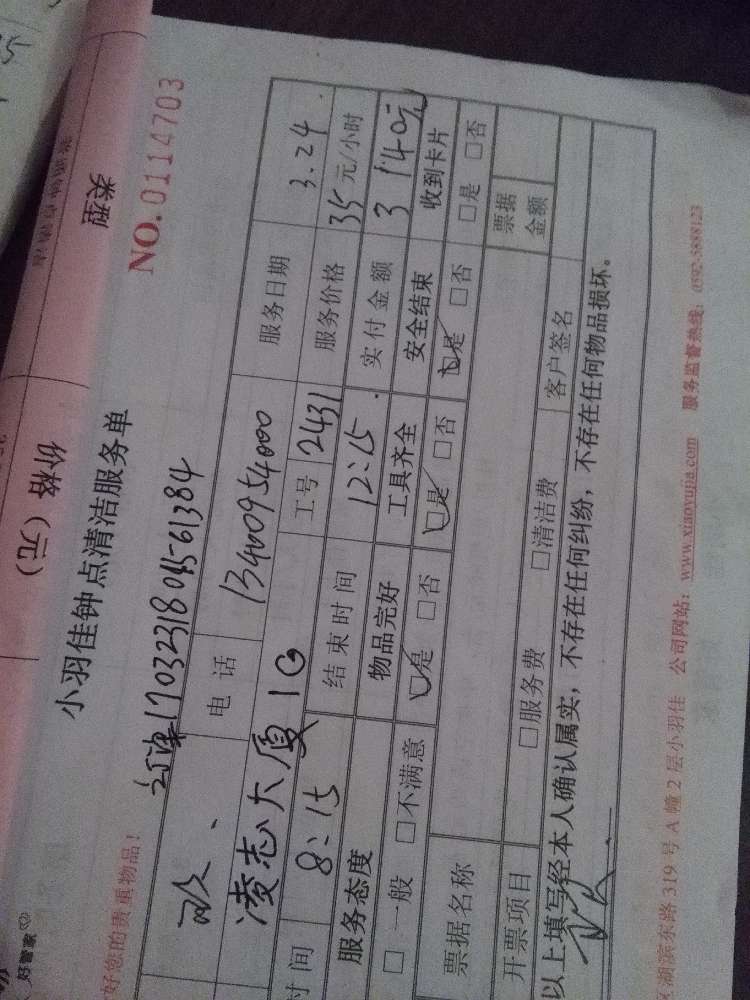 类型
价格（元）
NO.0114703
小羽佳钟点清洁服务单
好管家
好您的贵重物品！
订单17032318045561384
欧、 电 话 13400954000 服务日期 3.24.
凌志大厦1G 工号 2431 服务价格 35元/小时
时间 8:15 结束时间 12:15. 实付金额 3 140元
服务态度 物品完好 工具齐全 安全结束 收到卡片
□ 一般 □不满意 □是 □否 □是 □否 □是 □否 □是 □否
票据名称 票据金额
开票项目 □服务费 □清洁费
以上填写经本人确认属实，不存在任何纠纷，不存在任何物品损坏。
客户签名
湖滨东路319号A幢2层小羽佳 公司网站：www.xiaoyujia.com 服务监督热线：0592-5888123